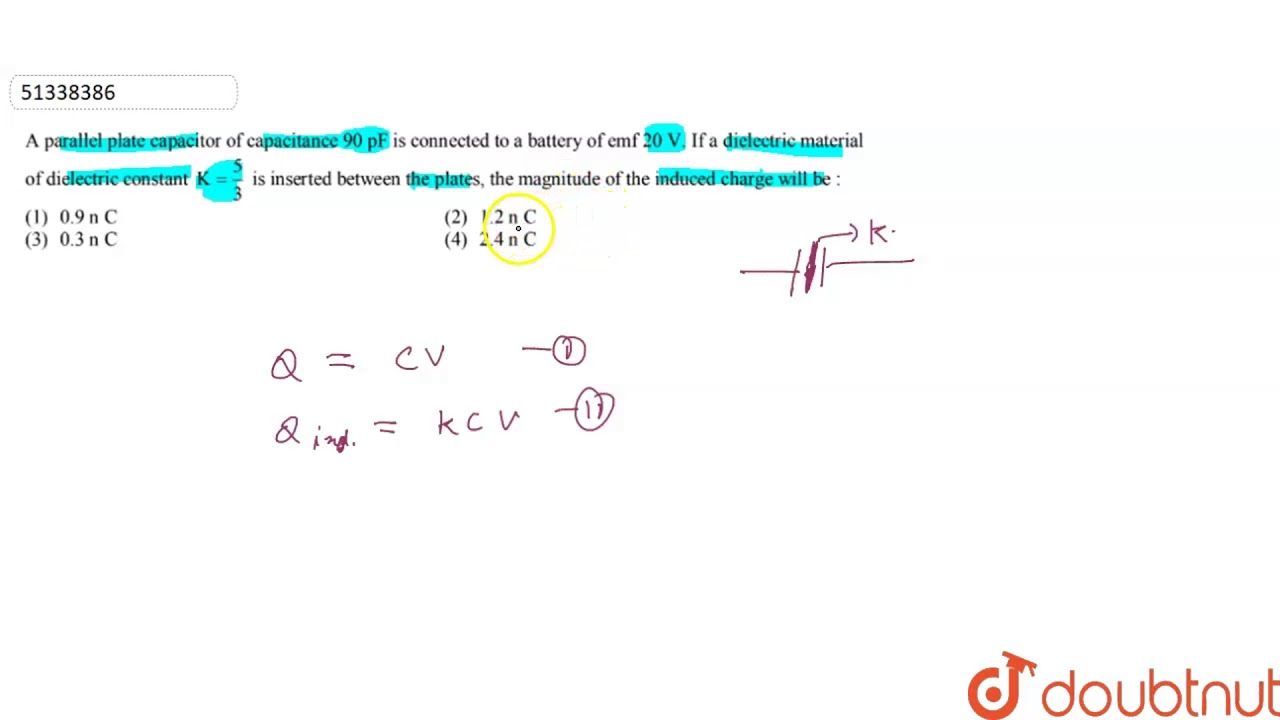 51338386
A parallel plate capacitor of capacitance 90 pF is connected to a battery of emf 20 V. If a dielectric material
of dielectric constant K = 5/3 is inserted between the plates, the magnitude of the induced charge will be :
(1) 0.9 n C (2) 1.2 n C
(3) 0.3 n C (4) 2.4 n C
K.
Q = CV — (I)
Q ind. = KCV — (II)
doubtnut